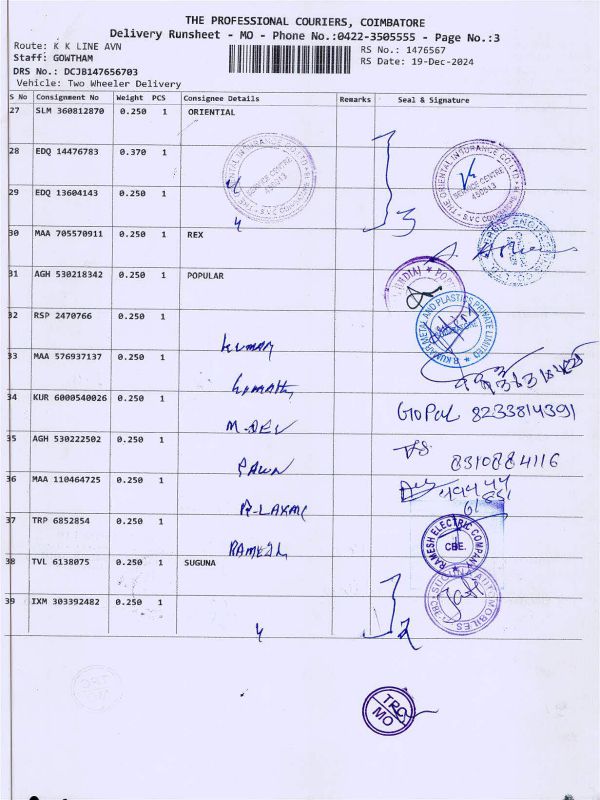 THE PROFESSIONAL COURIERS, COIMBATORE
Delivery Runsheet - MO - Phone No.:0422-3505555 - Page No.:3
Route: K K LINE AVN
RS No.: 1476567
Staff: GOWTHAM
RS Date: 19-Dec-2024
DRS No.: DCJB147656703
Vehicle: Two Wheeler Delivery
S No Consignment No Weight PCS Consignee Details Remarks Seal & Signature
27 SLM 360812870 0.250 1 ORIENTIAL
28 EDQ 14476783 0.370 1
THE ORIENTAL INSURANCE CO LTD
SERVICE CENTRE
450513
29 EDQ 13604143 0.250 1
3
30 MAA 705570911 0.250 1 REX
31 AGH 530218342 0.250 1 POPULAR
32 RSP 2470766 0.250 1 KUMAR
R.KUMAR METAL AND PLASTICS PRIVATE LIMITED
33 MAA 576937137 0.250 1
34 KUR 6000540026 0.250 1 M-DEV
GOPAL 8233814391
35 AGH 530222502 0.250 1 PAWN
8310884116
36 MAA 110464725 0.250 1 R-LAXMI
37 TRP 6852854 0.250 1 RAMESH
RAMESH ELECTRIC COMPANY
CBE.
38 TVL 6138075 0.250 1 SUGUNA
39 IXM 303392482 0.250 1
2
MO